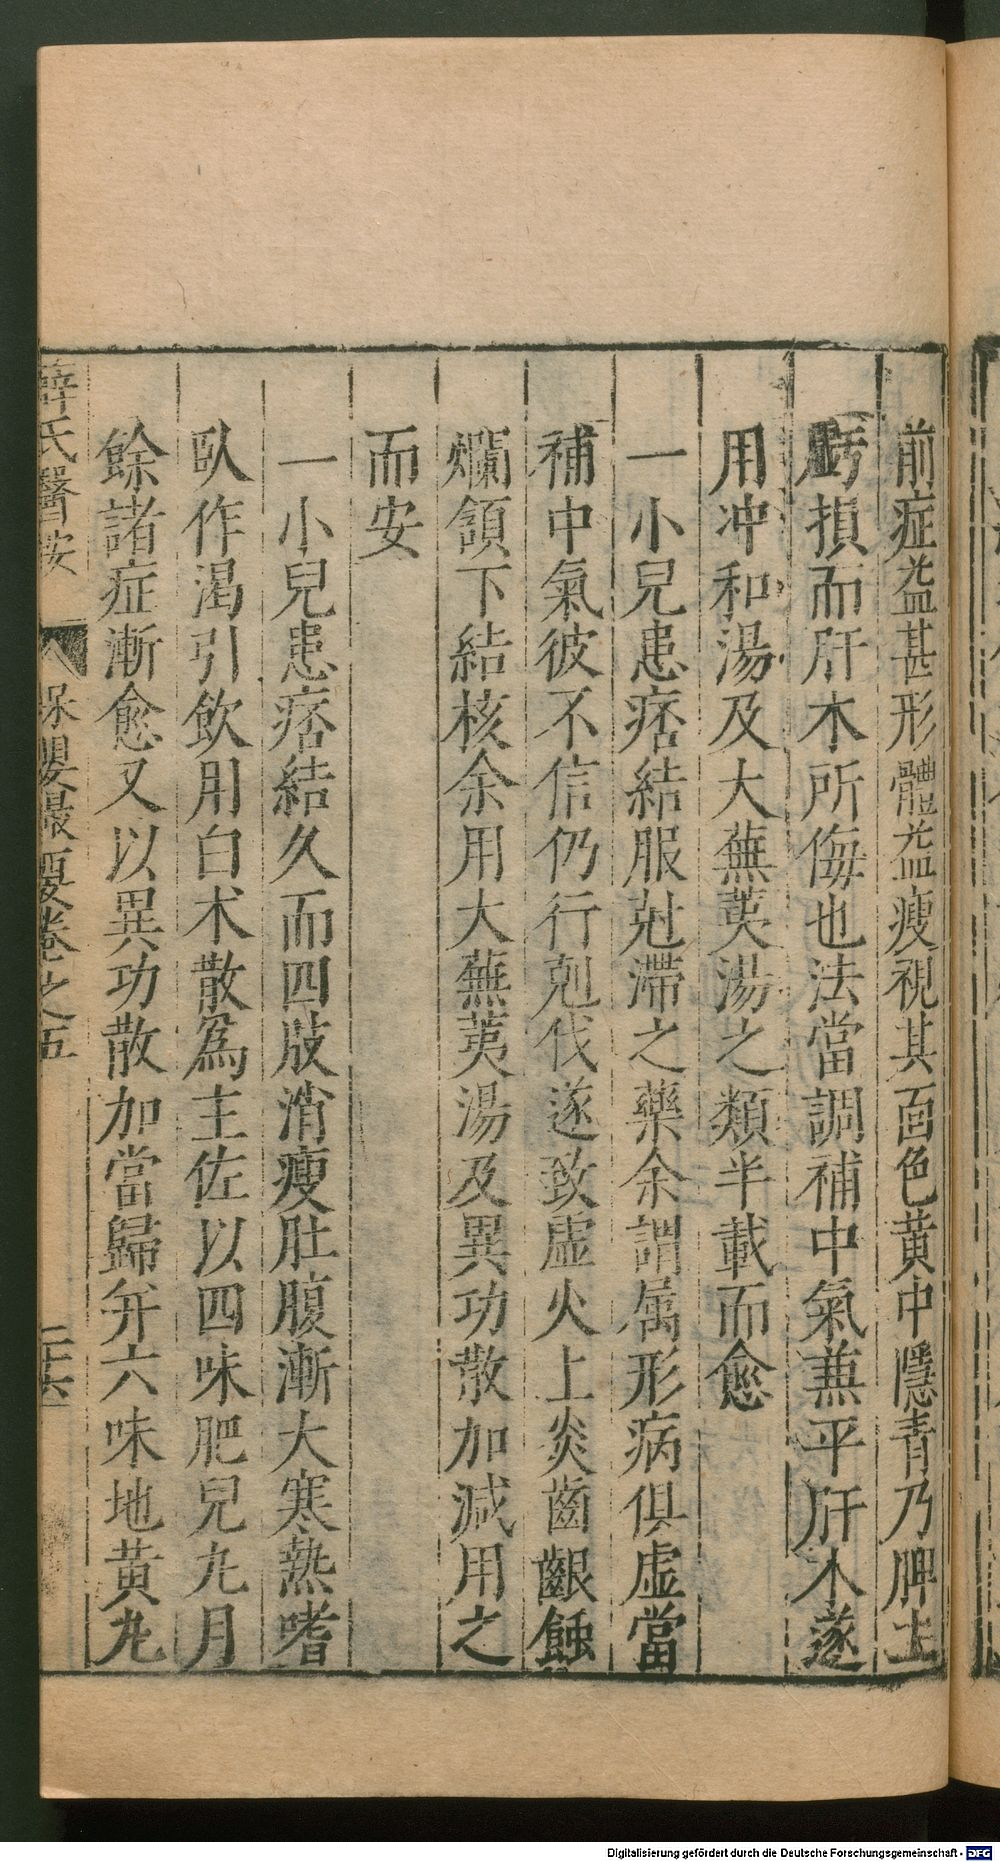 前症益甚形體益瘦視其面色黄中隱青乃脾土
虧損而肝木所侮也法當調補中氣兼平肝木遂
用冲和湯及大蕪荑湯之類半載而愈
一小兒患痞結服尅滯之藥余謂属形病俱虚當
補中氣彼不信仍行剋伐遂致虚火上炎齒齦蝕
爛頷下結核余用大蕪荑湯及異功散加減用之
而安
一小兒患痞結久而四肢消瘦肚腹漸大寒熱嗜
臥作渴引飲用白术散為主佐以四味肥兒丸月
餘諸症漸愈又以異功散加當歸并六味地黄丸
薛氏醫按 保嬰撮要卷之五 二十六
Digitalisierung gefördert durch die Deutsche Forschungsgemeinschaft - DFG